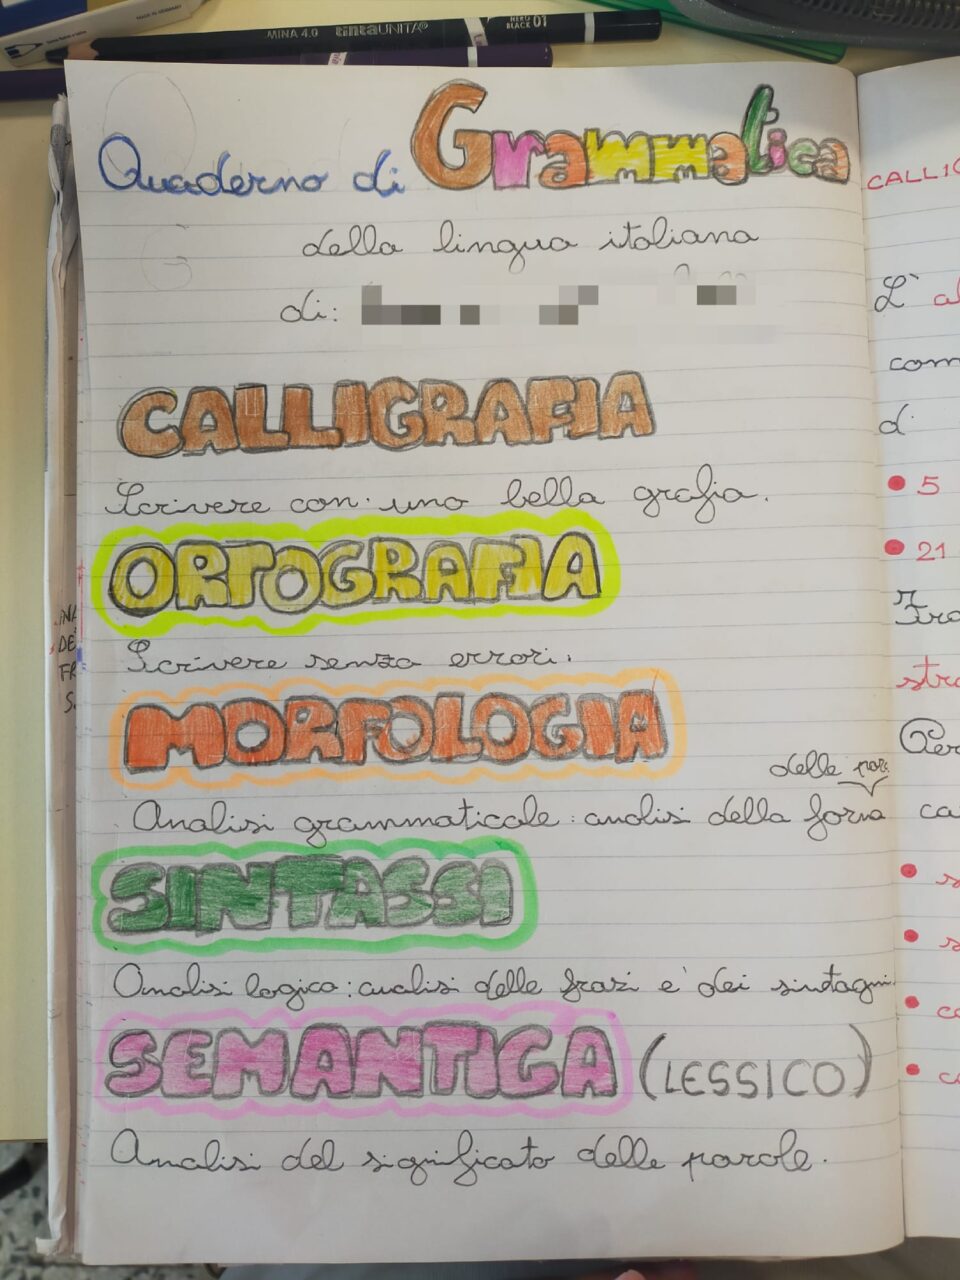 MADE IN GERMANY
MINA 4.0 tintaUNITA® NERO BLACK 01
Quaderno di Grammatica
della lingua italiana
di:
CALLIGRAFIA
Scrivere con una bella grafia.
ORTOGRAFIA
Scrivere senza errori.
MORFOLOGIA
delle par.
Analisi grammaticale: analisi della forma
SINTASSI
Analisi logica: analisi delle frasi e dei sintagmi
SEMANTICA (LESSICO)
Analisi del significato delle parole.
CALLIG
L' al
com
d
5
21
Fra
stra
Per
ca
s
s
co
c